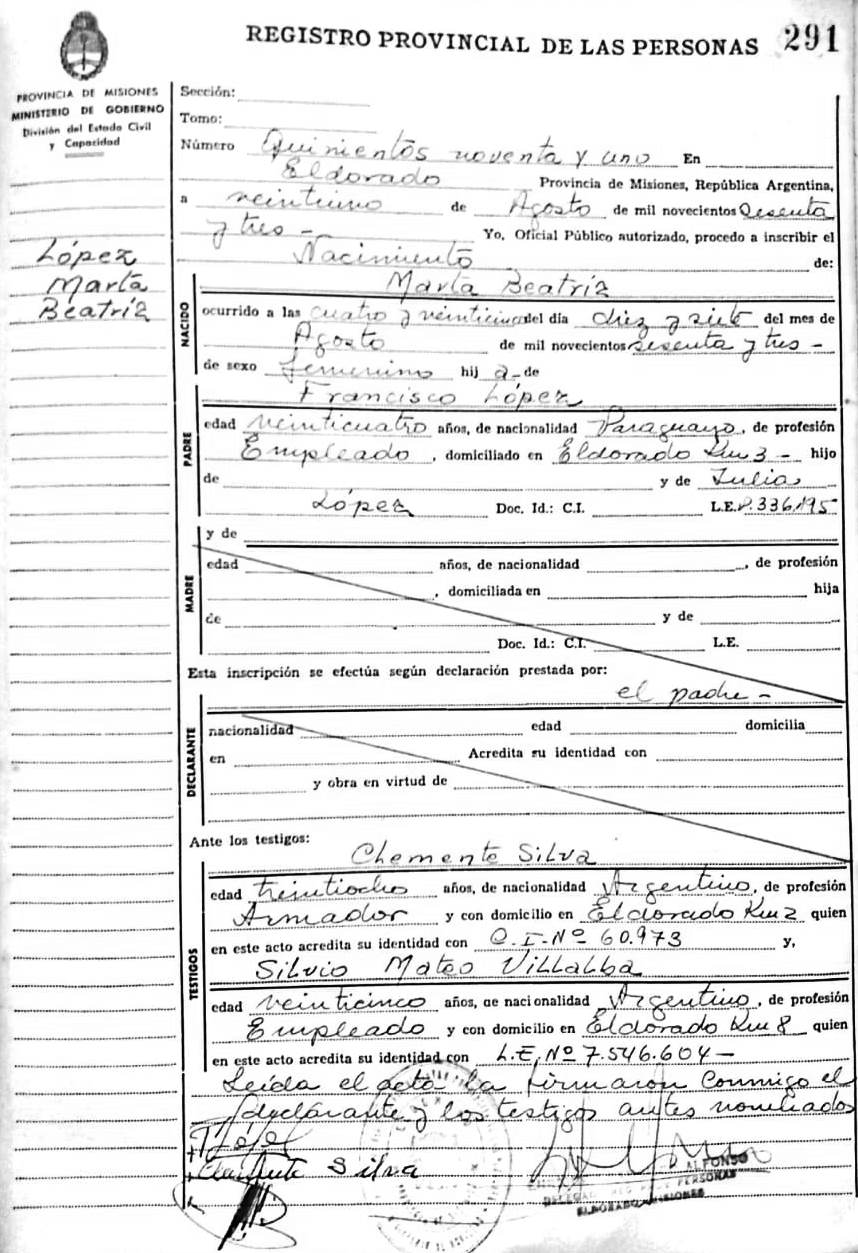 REGISTRO PROVINCIAL DE LAS PERSONAS 291
PROVINCIA DE MISIONES
MINISTERIO DE GOBIERNO
División del Estado Civil
y Capacidad
López
Marta
Beatríz
Sección:
Tomo:
Número Quinientos noventa y uno En
Eldorado Provincia de Misiones, República Argentina,
a veintiuno de Agosto de mil novecientos sesenta
y tres - Yo, Oficial Público autorizado, procedo a inscribir el
Nacimiento de:
NACIDO
Marta Beatríz
ocurrido a las cuatro y veinticinco del día diez y siete del mes de
Agosto de mil novecientos sesenta y tres -
de sexo femenino hij a - de
Francisco López
PADRE
edad veinticuatro años, de nacionalidad Paraguayo, de profesión
Empleado, domiciliado en Eldorado Km 3 - hijo
de y de Julia
López Doc. Id.: C.I. L.E.
MADRE
y de
edad años, de nacionalidad , de profesión
, domiciliada en hija
de y de
Doc. Id.: C.I. L.E.
Esta inscripción se efectúa según declaración prestada por:
el padre -
DECLARANTE
nacionalidad edad domicilia
en Acredita su identidad con
y obra en virtud de
Ante los testigos:
Clemente Silva
TESTIGOS
edad treintiocho años, de nacionalidad Argentino, de profesión
Armador y con domicilio en Eldorado Km 2 quien
en este acto acredita su identidad con C.I. Nº 60.973 y,
Silvio Mateo Villalba
edad veinticinco años, de nacionalidad Argentino, de profesión
Empleado y con domicilio en Eldorado Km 8 quien
en este acto acredita su identidad con L.E. Nº 7.546.604 -
Leída el acta la firmaron conmigo el
declarante y los testigos antes nombrados
Clemente Silva
ALFONSO
PERSONAS
ELDORADO MISIONES